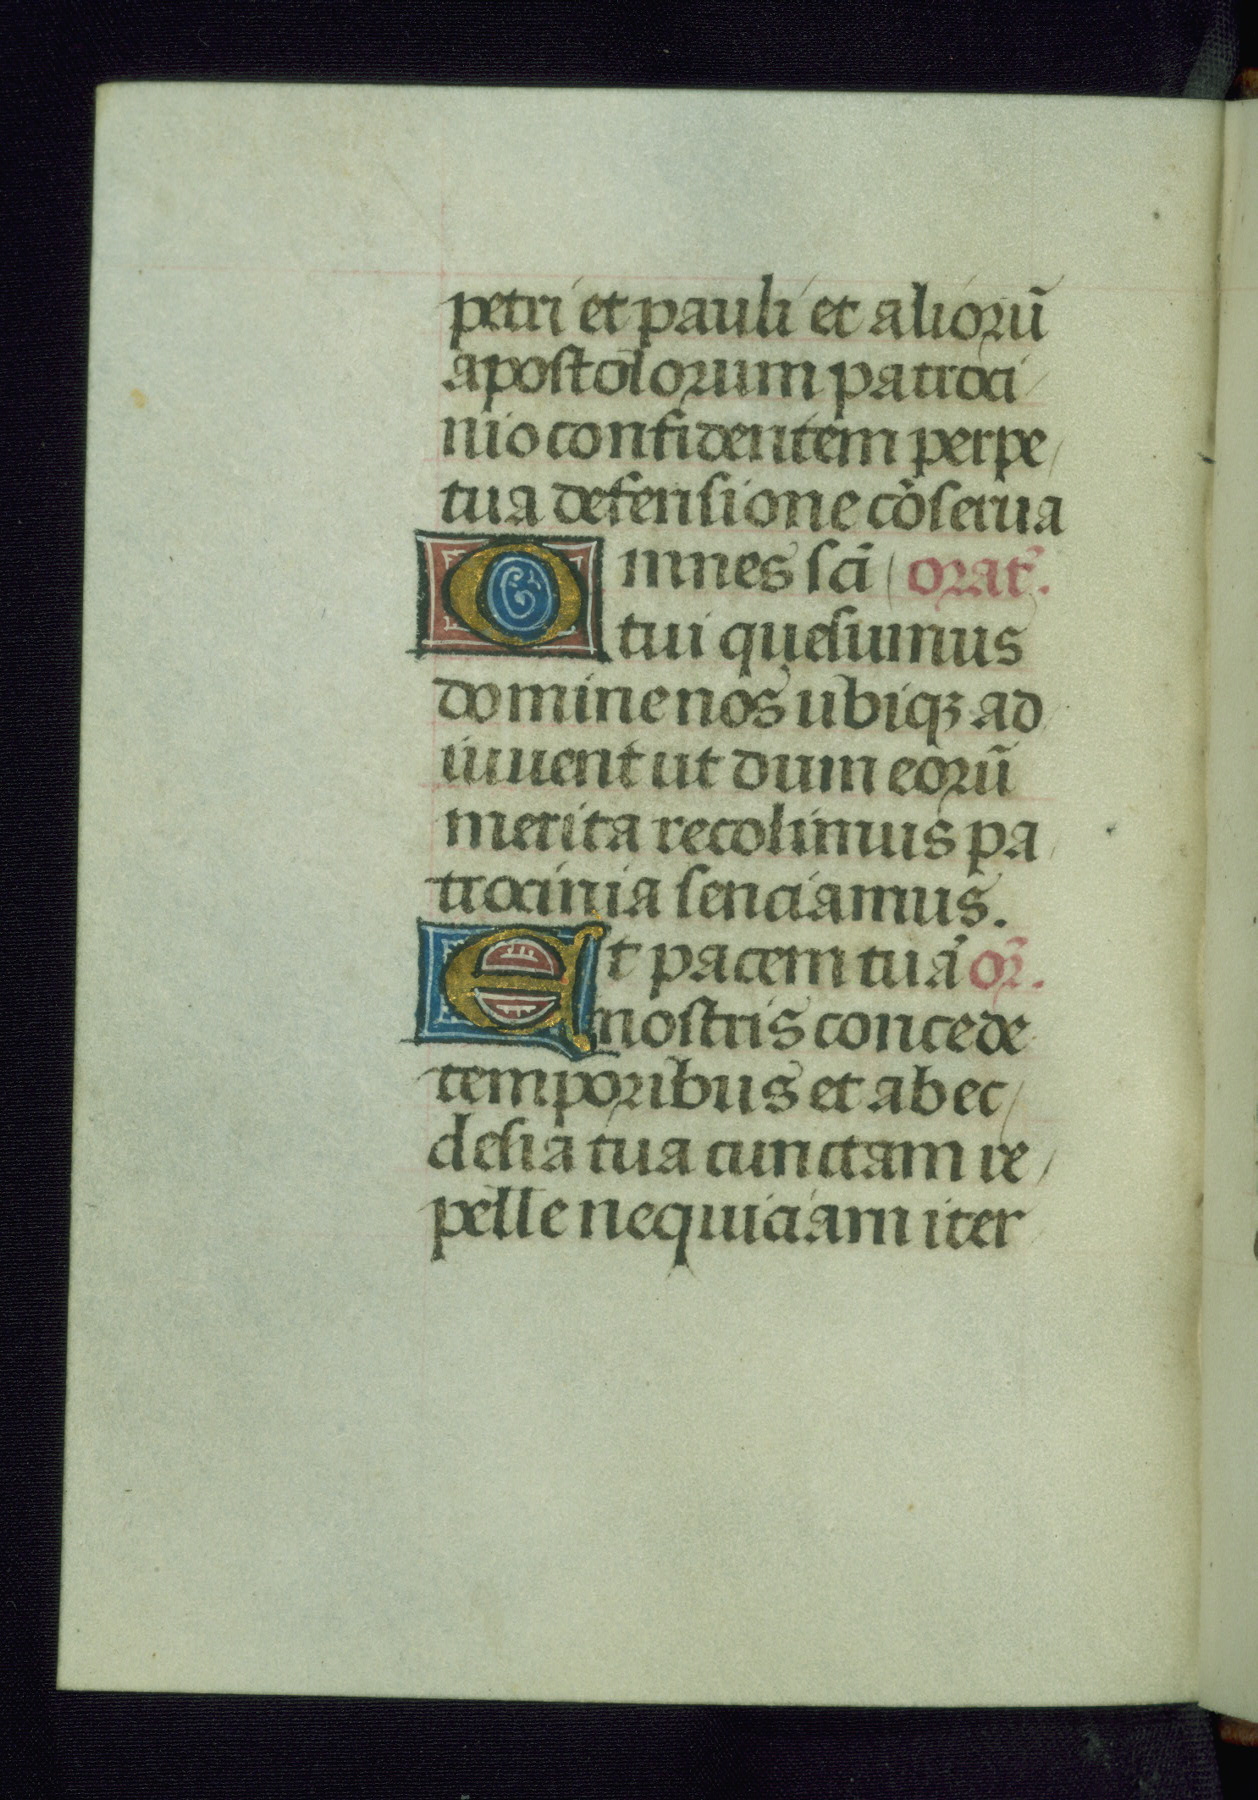 petri et pauli et aliorū
apostolorum patroci
nio confidentem perpe
tua defensione cōserua
Omnes sc̄i orat̄.
tui quesumus
domine nos ubiqꝫ ad
iuuent ut dum eorū
merita recolimus pa
trocinia senciamus.
Et pacem tuā or̄.
nostris concede
temporibus et ab ec
clesia tua cunctam re
pelle nequiciam iter